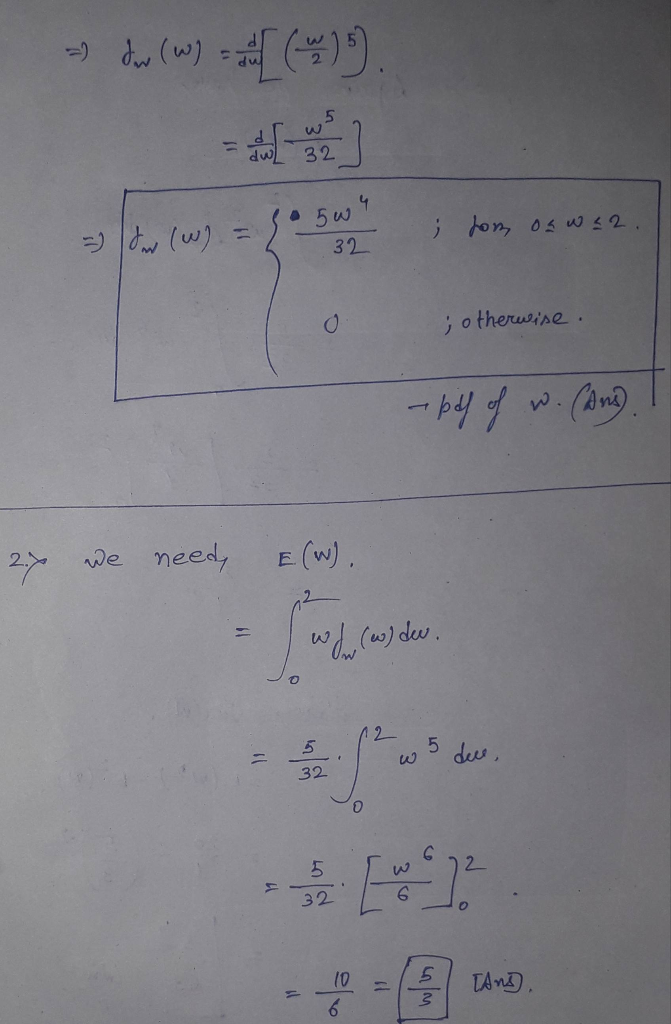 =) f_w (w) = d/dw [ (w/2)^5 ].
= d/dw [ w^5/32 ]
=) f_w (w) = { 5w^4/32 ; for, 0 ≤ w ≤ 2.
0 ; otherwise.
→ pdf of w. (Ans).
2.> We need, E(W).
= ∫_0^2 w f_w (w) dw.
= 5/32 . ∫_0^2 w^5 dw.
= 5/32 . [ w^6/6 ]_0^2 .
= 10/6 = 5/3 [Ans].